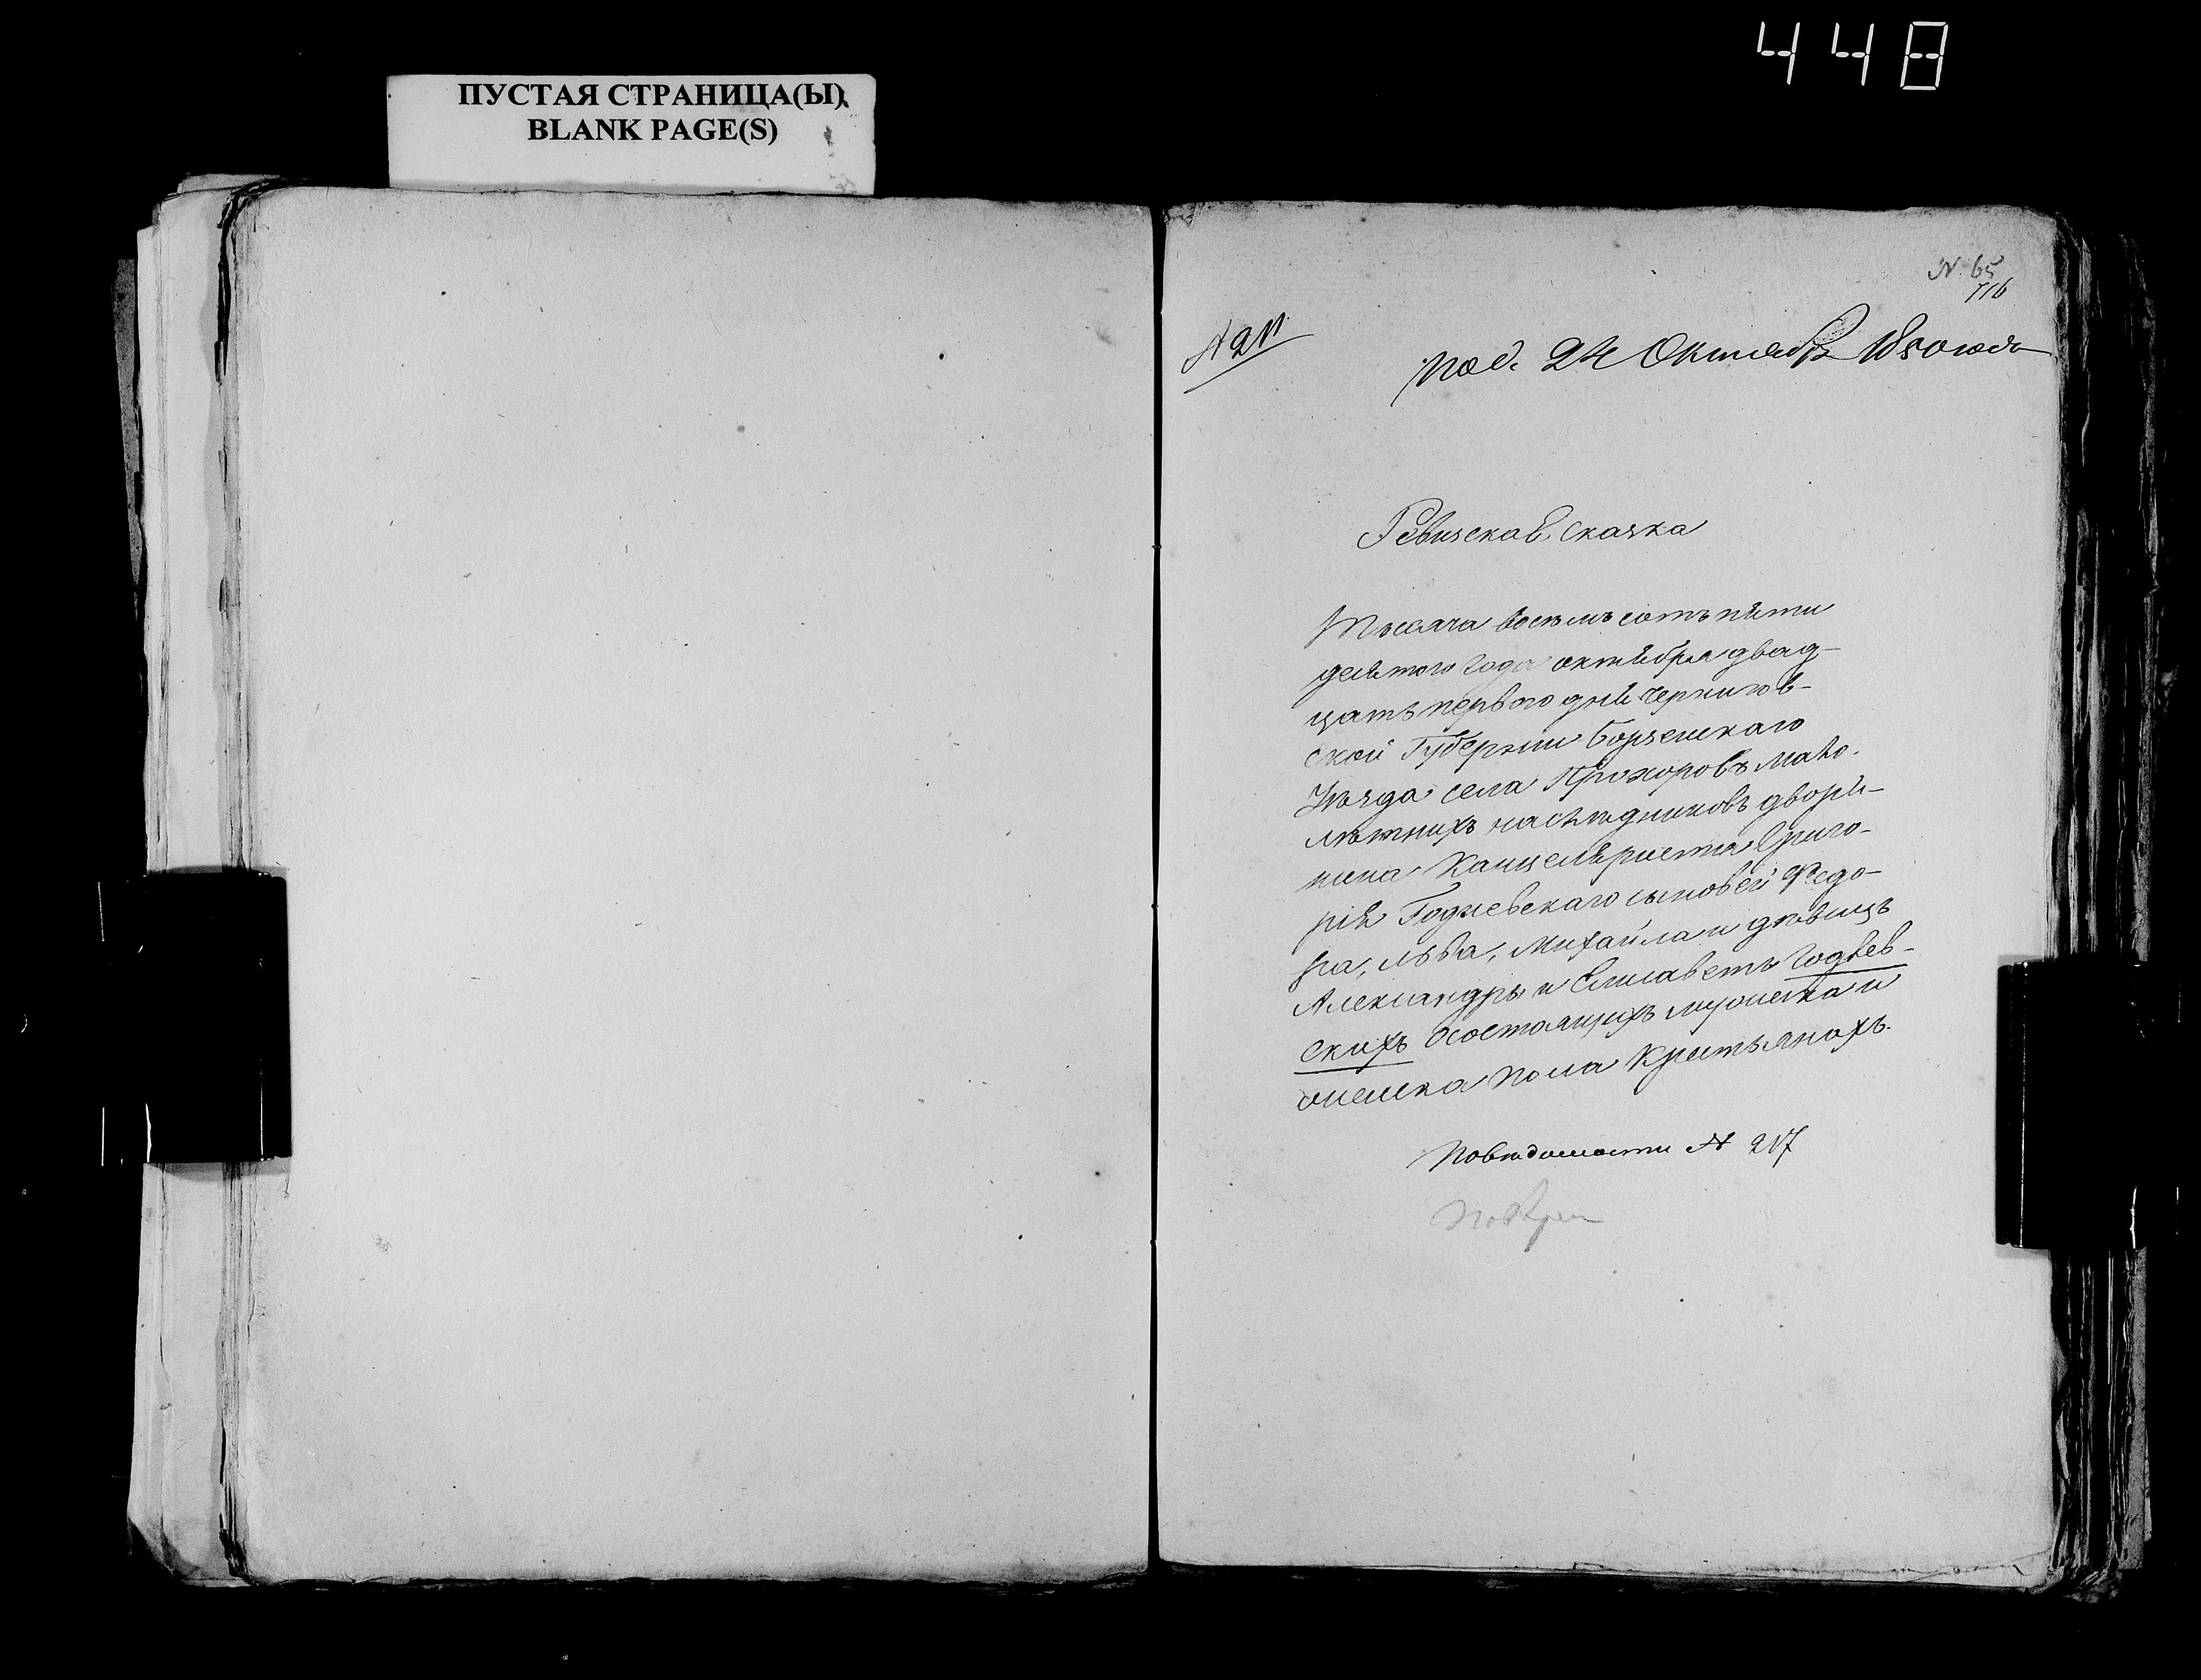 448
ПУСТАЯ СТРАНИЦА(Ы)
BLANK PAGE(S)
№ 65
716
№ 211
под. 24 Октября 1850 года
Ревизская сказка
Тысяча восемь сотъ пяти
десятого года октября двад-
цать первого дня Чернигов-
ской Губернии Борзенскаго
Уѣзда села Прохоровъ мало-
лѣтнихъ наслѣдниковъ дворя-
нина Канцеляриста Григо-
рія Годзевскаго сыновей Федо-
ра, Льва, Михайла и дѣвицъ
Александры и Елисаветъ Годзев-
скихъ о состоящихъ мужеска и
женска пола Крестьянахъ.
По вѣдомости № 217